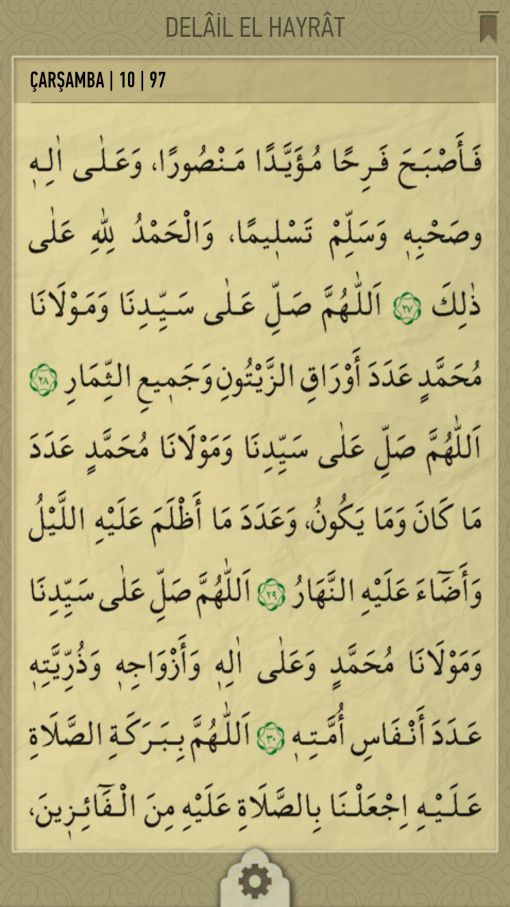 DELÂİL EL HAYRÂT
ÇARŞAMBA | 10 | 97
فَأَصْبَحَ فَرِحًا مُؤَيَّدًا مَنْصُورًا، وَعَلٰى اٰلِهٖ
وَصَحْبِهٖ وَسَلِّمْ تَسْلٖيمًا، وَالْحَمْدُ لِلّٰهِ عَلٰى
ذٰلِكَ ﴿٢٧﴾ اَللّٰهُمَّ صَلِّ عَلٰى سَيِّدِنَا وَمَوْلَانَا
مُحَمَّدٍ عَدَدَ أَوْرَاقِ الزَّيْتُونِ وَجَمٖيعِ الثِّمَارِ ﴿٢٨﴾
اَللّٰهُمَّ صَلِّ عَلٰى سَيِّدِنَا وَمَوْلَانَا مُحَمَّدٍ عَدَدَ
مَا كَانَ وَمَا يَكُونُ، وَعَدَدَ مَا أَظْلَمَ عَلَيْهِ اللَّيْلُ
وَأَضَٓاءَ عَلَيْهِ النَّهَارُ ﴿٢٩﴾ اَللّٰهُمَّ صَلِّ عَلٰى سَيِّدِنَا
وَمَوْلَانَا مُحَمَّدٍ وَعَلٰى اٰلِهٖ وَأَزْوَاجِهٖ وَذُرِّيَّتِهٖ
عَدَدَ أَنْفَاسِ أُمَّتِهٖ ﴿٣٠﴾ اَللّٰهُمَّ بِبَرَكَةِ الصَّلَاةِ
عَلَيْهِ اِجْعَلْنَا بِالصَّلَاةِ عَلَيْهِ مِنَ الْفَٓائِزٖينَ،